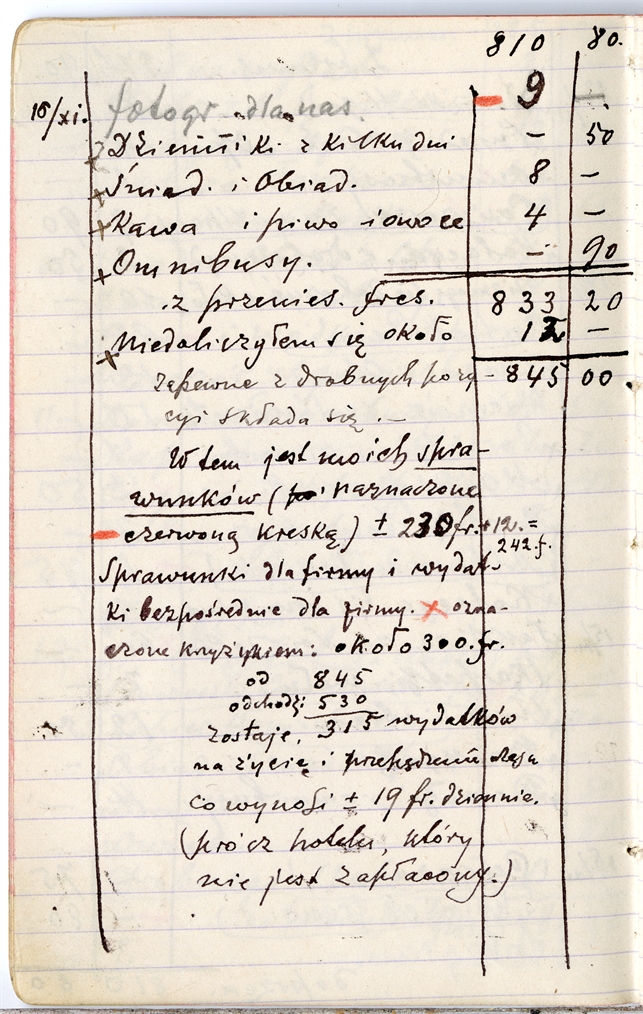 810 80.
16/xi. fotogr. dla nas. – 9 – .
Dzienniki z kilku dni – 50
+ Śniad. i Obiad. 8 –
+ Kawa i piwo i owoce 4 –
+ Omnibusy. – 90
z przenies. frcs. 833 20
x Niedoliczyłem się około 12 –
zapewne z drobnych pozy- 845 00
cyi składa się. –
W tem jest moich spra-
wunków ( naznaczone
– czerwoną kreską) ± 230 fr. + 12. =
242. f.
Sprawunki dla firmy i wydat-
ki bezpośrednie dla firmy. x ozna-
czone krzyżykiem: około 300. fr.
od 845
odchodzi 530
zostaje, 315 wydatków
na życie i
co wynosi ± 19 fr. dziennie.
(prócz hotelu, który
nie jest zapłacony.)